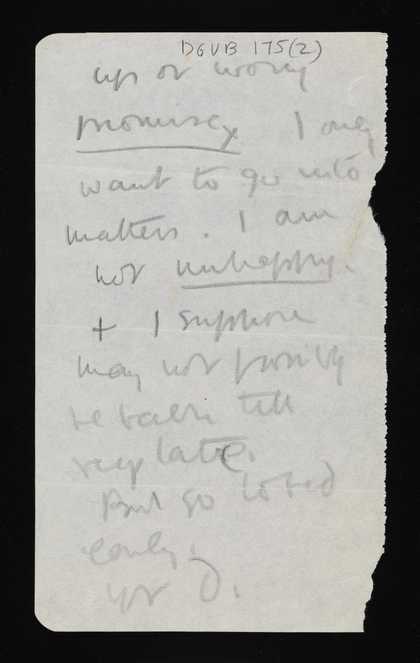 DGVB 175(2)
up or worry
promise, I only
want to go into
matters. I am
not unhappy.
+ I suppose
may not possibly
be back till
very late.
But go to bed
early.
yr D.